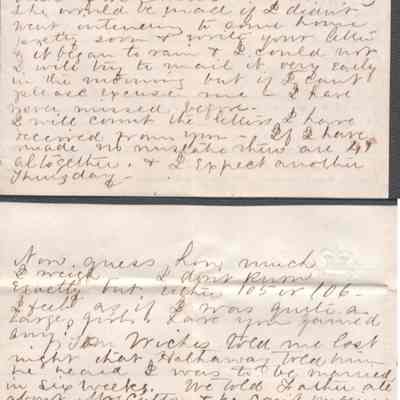 She would be mad if I didn't
went intening to come home
pretty soon & write your letter
& it began to rain & I could not
I will try to mail it very early
in the morning but if I can't
please excuse me - I have
never missed before -
I will count the letters I have
received from you - If I have
made no mistake there are 48
altogether. & I expect another
Thursday -
Now guess how much
I weigh I dont know
exactly but either 105 or 106 -
I feel as if I was quite a
large girl - have you gained
any; Wickes told me last
night that Hathaway told him
he heard I was to be married
in six weeks. We told Father all
about